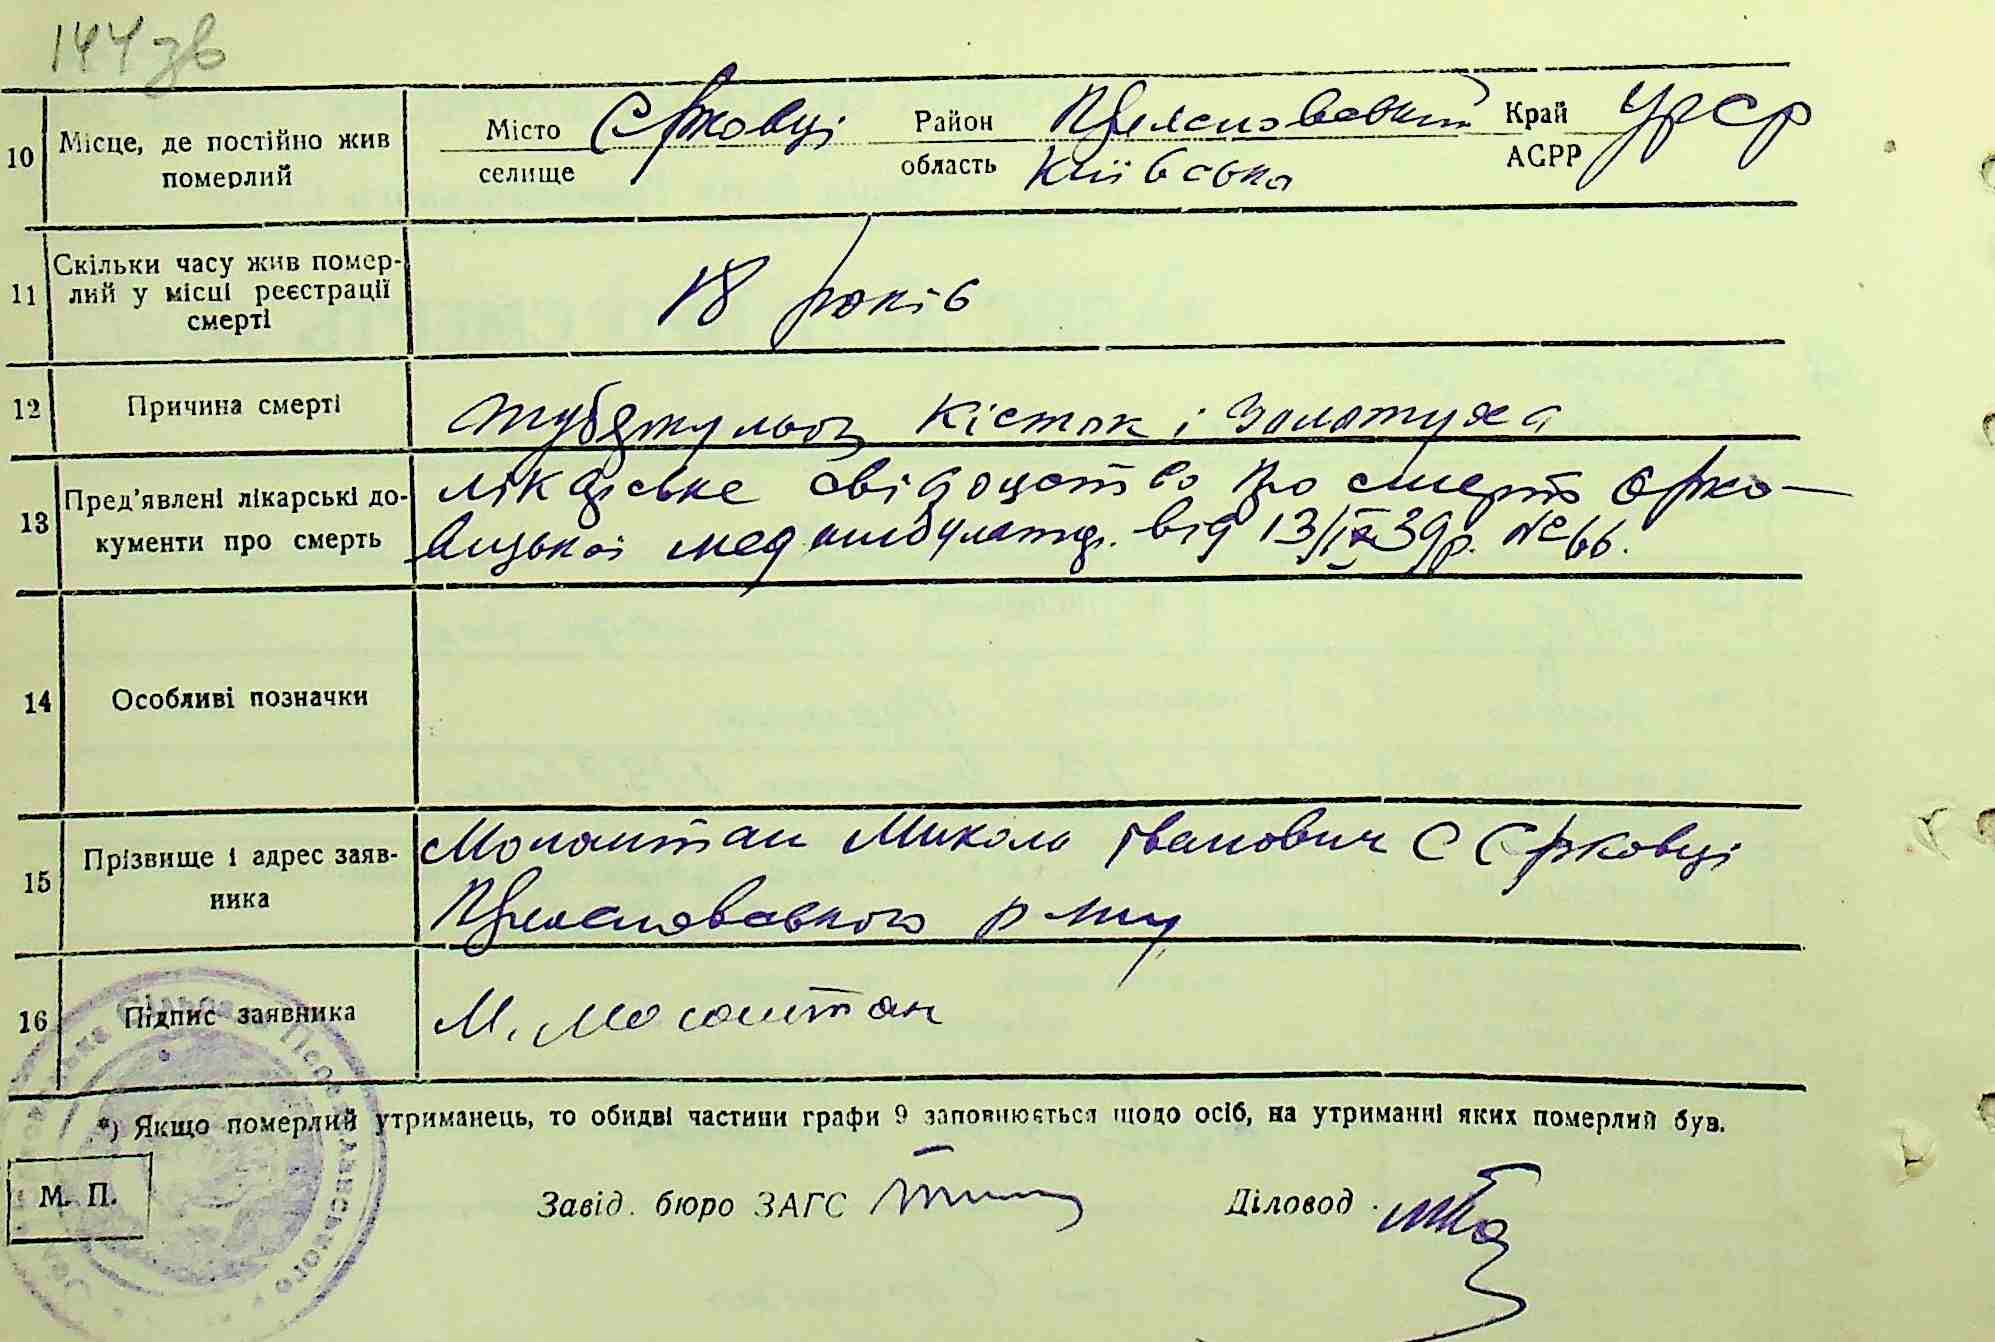 144зв
10 Місце, де постійно жив померлий Місто селище Єрковці Район область Переяславський Київська Край АСРР УРСР
11 Скільки часу жив помер-
лий у місці реєстрації
смерті 18 років
12 Причина смерті туберкульоз кісток і золотуха
13 Пред'явлені лікарські до- лікарське свідоцтво про смерть Єрко-
кументи про смерть вицької мед амбулатор. від 13/IX 39р. № 66.
14 Особливі позначки
15 Прізвище і адрес заяв- Микола Іванович с Єрковці
ника Переяславського р-ну
16 Підпис заявника М.
*) Якщо померлий утриманець, то обидві частини графи 9 заповнюється щодо осіб, на утриманні яких померлий був.
М. П.
Завід. бюро ЗАГС Діловод